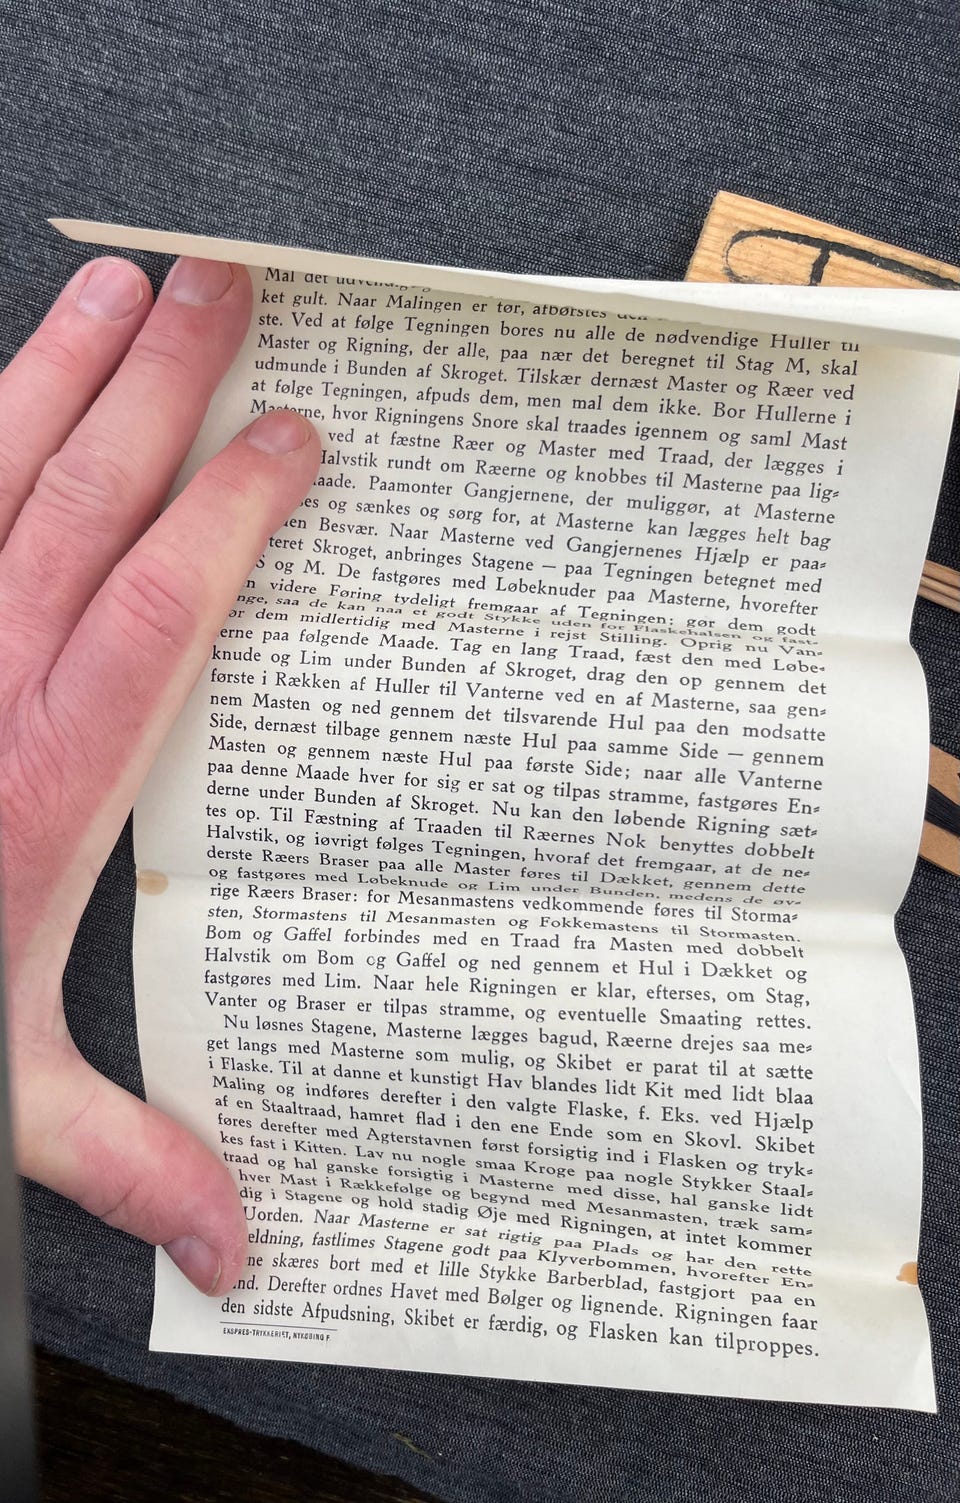 Mal det udvendig
ket gult. Naar Malingen er tør, afbørstes den
ste. Ved at følge Tegningen bores nu alle de nødvendige Huller til
Master og Rigning, der alle, paa nær det beregnet til Stag M, skal
udmunde i Bunden af Skroget. Tilskær dernæst Master og Ræer ved
at følge Tegningen, afpuds dem, men mal dem ikke. Bor Hullerne i
Masterne, hvor Rigningens Snore skal traades igennem og saml Mast
ved at fæstne Ræer og Master med Traad, der lægges i
Halvstik rundt om Ræerne og knobbes til Masterne paa lig⸗
Maade. Paamonter Gangjernene, der muliggør, at Masterne
es og sænkes og sørg for, at Masterne kan lægges helt bag
en Besvær. Naar Masterne ved Gangjernenes Hjælp er paa⸗
teret Skroget, anbringes Stagene — paa Tegningen betegnet med
S og M. De fastgøres med Løbeknuder paa Masterne, hvorefter
n videre Føring tydeligt fremgaar af Tegningen; gør dem godt
nge, saa de kan naa et godt Stykke uden for Flaskehalsen og fast⸗
ør dem midlertidig med Masterne i rejst Stilling. Oprig nu Van⸗
erne paa følgende Maade. Tag en lang Traad, fæst den med Løbe⸗
knude og Lim under Bunden af Skroget, drag den op gennem det
første i Rækken af Huller til Vanterne ved en af Masterne, saa gen⸗
nem Masten og ned gennem det tilsvarende Hul paa den modsatte
Side, dernæst tilbage gennem næste Hul paa samme Side — gennem
Masten og gennem næste Hul paa første Side; naar alle Vanterne
paa denne Maade hver for sig er sat og tilpas stramme, fastgøres En⸗
derne under Bunden af Skroget. Nu kan den løbende Rigning sæt⸗
tes op. Til Fæstning af Traaden til Ræernes Nok benyttes dobbelt
Halvstik, og iøvrigt følges Tegningen, hvoraf det fremgaar, at de ne⸗
derste Ræers Braser paa alle Master føres til Dækket, gennem dette
og fastgøres med Løbeknude og Lim under Bunden, medens de øv⸗
rige Ræers Braser: for Mesanmastens vedkommende føres til Storma⸗
sten, Stormastens til Mesanmasten og Fokkemastens til Stormasten.
Bom og Gaffel forbindes med en Traad fra Masten med dobbelt
Halvstik om Bom og Gaffel og ned gennem et Hul i Dækket og
fastgøres med Lim. Naar hele Rigningen er klar, efterses, om Stag,
Vanter og Braser er tilpas stramme, og eventuelle Smaating rettes.
Nu løsnes Stagene, Masterne lægges bagud, Ræerne drejes saa me⸗
get langs med Masterne som mulig, og Skibet er parat til at sætte
i Flaske. Til at danne et kunstigt Hav blandes lidt Kit med lidt blaa
Maling og indføres derefter i den valgte Flaske, f. Eks. ved Hjælp
af en Staaltraad, hamret flad i den ene Ende som en Skovl. Skibet
føres derefter med Agterstavnen først forsigtig ind i Flasken og tryk⸗
kes fast i Kitten. Lav nu nogle smaa Kroge paa nogle Stykker Staal⸗
traad og hal ganske forsigtig i Masterne med disse, hal ganske lidt
hver Mast i Rækkefølge og begynd med Mesanmasten, træk sam⸗
dig i Stagene og hold stadig Øje med Rigningen, at intet kommer
Uorden. Naar Masterne er sat rigtig paa Plads og har den rette
eldning, fastlimes Stagene godt paa Klyverbommen, hvorefter En⸗
ne skæres bort med et lille Stykke Barberblad, fastgjort paa en
nd. Derefter ordnes Havet med Bølger og lignende. Rigningen faar
den sidste Afpudsning, Skibet er færdig, og Flasken kan tilproppes.
EKSPRES-TRYKKERIET, NYKØBING F.